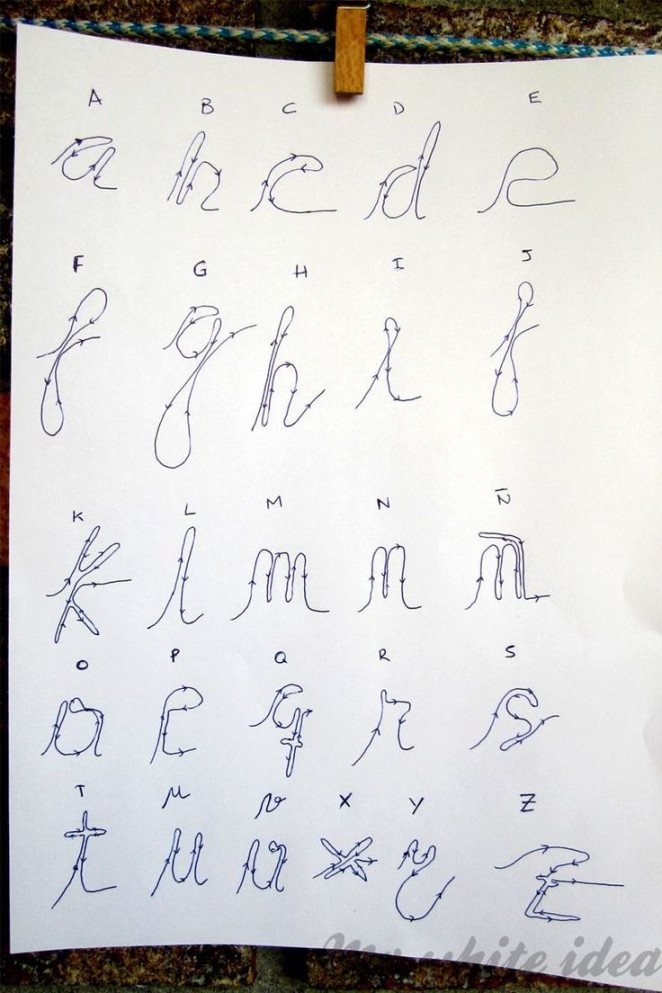 A B C D E
a b c d e
F G H I J
f g h i j
K L M N Ñ
k l m n ñ
O P Q R S
o p q r s
T u v X Y Z
t u v x y z
My white idea